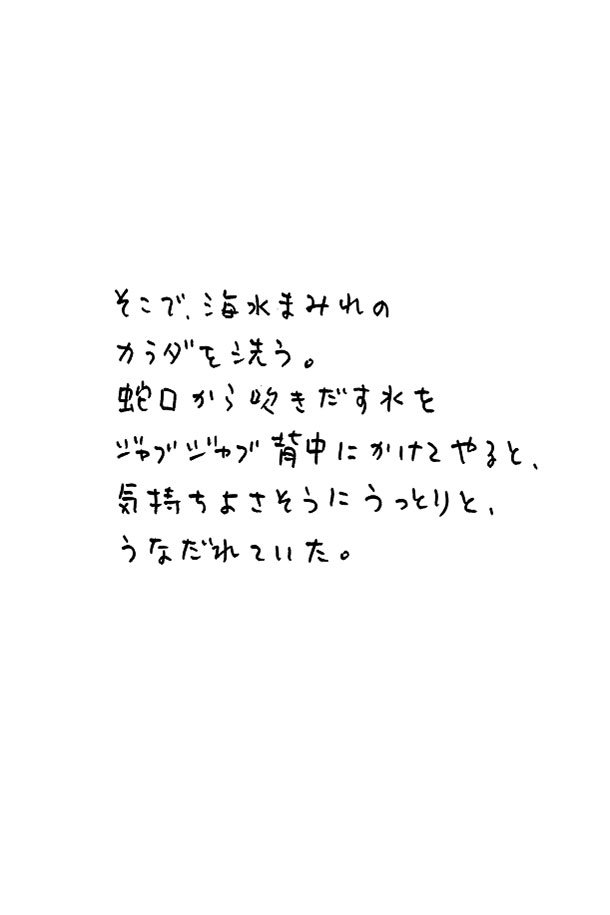 そこで、海水まみれの
カラダを洗う。
蛇口から吹きだす水を
ジャブジャブ背中にかけてやると、
気持ちよさそうにうっとりと、
うなだれていた。